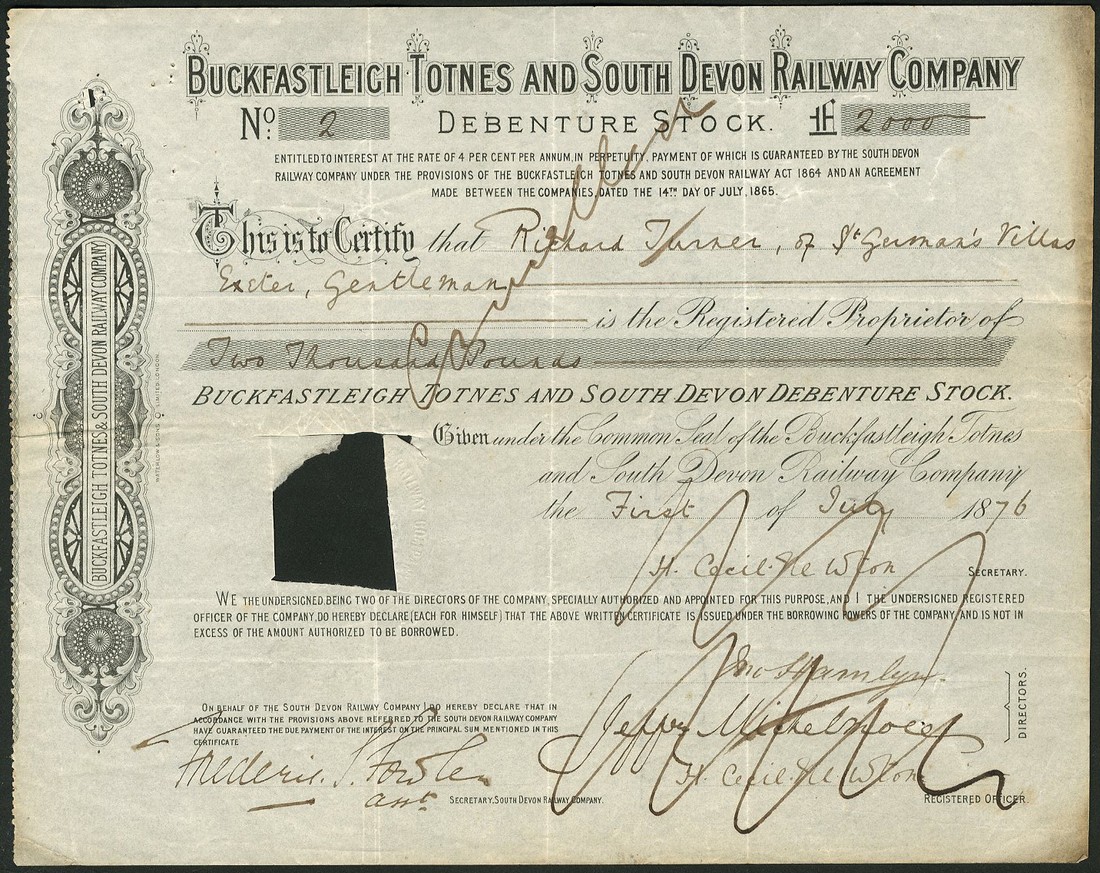 BUCKFASTLEIGH TOTNES AND SOUTH DEVON RAILWAY COMPANY
No: 2 DEBENTURE STOCK. £ 2000
ENTITLED TO INTEREST AT THE RATE OF 4 PER CENT PER ANNUM, IN PERPETUITY, PAYMENT OF WHICH IS GUARANTEED BY THE SOUTH DEVON
RAILWAY COMPANY UNDER THE PROVISIONS OF THE BUCKFASTLEIGH TOTNES AND SOUTH DEVON RAILWAY ACT 1864 AND AN AGREEMENT
MADE BETWEEN THE COMPANIES, DATED THE 14TH DAY OF JULY, 1865.
Cancelled
This is to Certify that Richard Turner, of St German's Villas
Exeter, Gentleman
is the Registered Proprietor of
Two Thousand Pounds
BUCKFASTLEIGH TOTNES AND SOUTH DEVON DEBENTURE STOCK.
Given under the Common Seal of the Buckfastleigh Totnes
and South Devon Railway Company
the First of July 1876
H. Cecil SECRETARY.
WE THE UNDERSIGNED BEING TWO OF THE DIRECTORS OF THE COMPANY, SPECIALLY AUTHORIZED AND APPOINTED FOR THIS PURPOSE, AND I THE UNDERSIGNED REGISTERED
OFFICER OF THE COMPANY, DO HEREBY DECLARE (EACH FOR HIMSELF) THAT THE ABOVE WRITTEN CERTIFICATE IS ISSUED UNDER THE BORROWING POWERS OF THE COMPANY, AND IS NOT IN
EXCESS OF THE AMOUNT AUTHORIZED TO BE BORROWED.
Jno Hamlyn.
DIRECTORS.
ON BEHALF OF THE SOUTH DEVON RAILWAY COMPANY I DO HEREBY DECLARE THAT IN
ACCORDANCE WITH THE PROVISIONS ABOVE REFERRED TO THE SOUTH DEVON RAILWAY COMPANY
HAVE GUARANTEED THE DUE PAYMENT OF THE INTEREST ON THE PRINCIPAL SUM MENTIONED IN THIS
CERTIFICATE
H. Cecil
REGISTERED OFFICER.
asst SECRETARY, SOUTH DEVON RAILWAY COMPANY.
BUCKFASTLEIGH TOTNES & SOUTH DEVON RAILWAY COMPANY
WATERLOW & SONS LIMITED LONDON